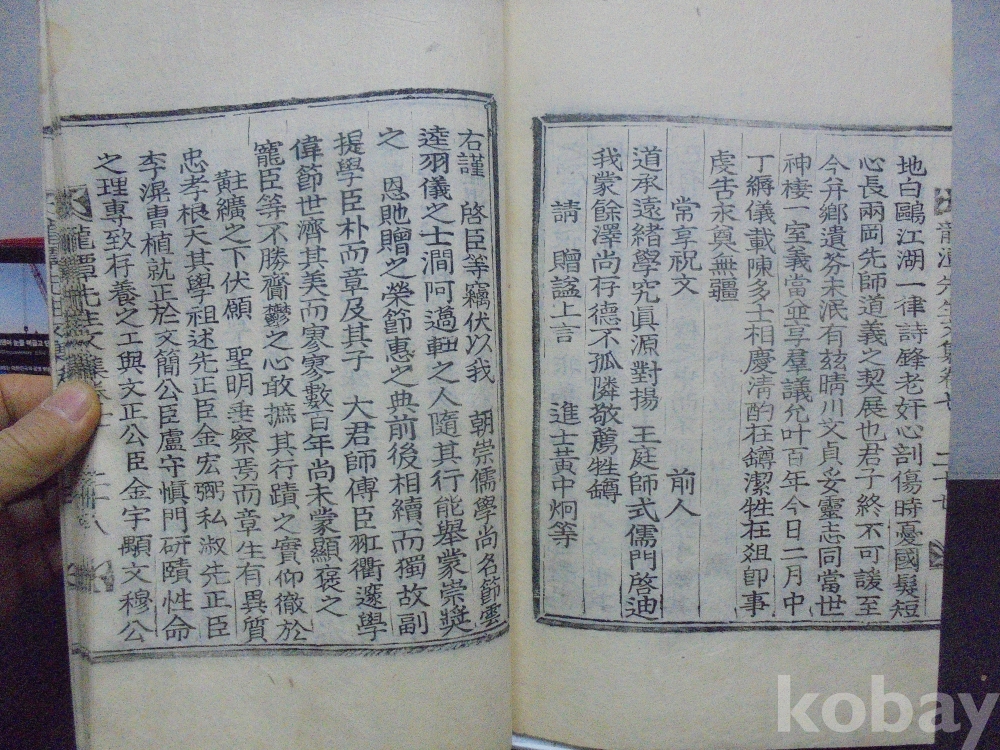 地白鷗江湖一律詩鋒老奸心剖傷時憂國髮短
心長兩岡先師道義之契展也君子終不可諼至
今弁鄉遺芬未泯有玆晴川文貞妥靈志同當世
神棲一室義當並享羣議允叶百年今日二月中
丁縟儀載陳多士相慶淸酌在罇潔牲在俎卽事
虔告永奠無疆
常享祝文 前人
道承遠緖學究眞源對揚 王庭師式儒門啓迪
我蒙餘澤尚存德不孤隣敬薦牲罇
請 贈諡上言 進士黃中炯等
右謹 啓臣等竊伏以我 朝崇儒學尚名節雲
逵羽儀之士澗阿薖軸之人隨其行能擧蒙崇奬
之 恩貤贈之榮節惠之典前後相續而獨故副
提學臣朴而章及其子 大君師傅臣羾衢邃學
偉節世濟其美而寥寥數百年尚未蒙顯褒之
寵臣等不勝齎鬱之心敢摭其行蹟之實仰徹於
黈纊之下伏願 聖明垂察焉而章生有異質
忠孝根天其學祖述先正臣金宏弼私淑先正臣
李滉曺植就正於文簡公臣盧守愼門硏賾性命
之理專致存養之工與文正公臣金宇顒文穆公
龍潭先生文集卷七 二十八